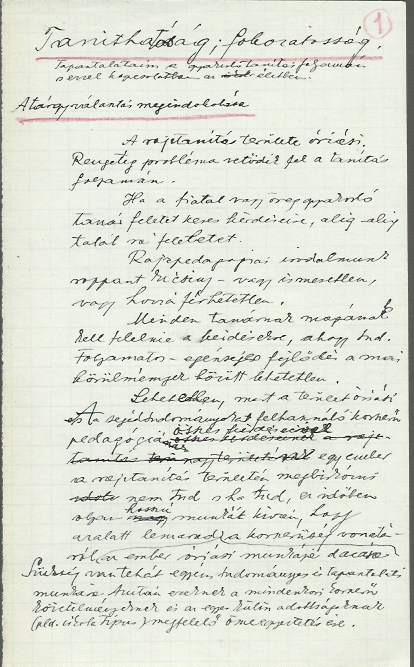 1
Tanithatóság; fokozatosság.
Tapasztalataim a gyakorló tanítás folyamán
szerzett kapcsolatban az életben.
A tárgyválasztás megindokolása
A rajztanítás területe óriási.
Rengeteg probléma vetődik fel a tanítás
folyamán.
Ha a fiatal vagy öreg gyakorló
tanár feletet keres kérdéseire, alig-alig
talál rá feleletet.
Rajzpedagógiai irodalmunk
roppant kicsiny – vagy ismeretlen,
vagy hozzá férhetetlen.
Minden tanárnak magának
kell felelnie a kérdésekre, ahogy tud.
Folyamatos – egészséges fejlődés a mai
körülmények között lehetetlen.
Lehetetlen, mert a terület óriási
és A segédtudományokat felhasználó korszerű
pedagógiai összes kérdéseivel
egy ember
a rajztanítás területén megbirkózni
nem tud s ha tud, ez időben
olyan hosszú munkát kíván, hogy
azalatt lemarad a korszerűség
ról, az ember óriási munkája dacára
Szükség van tehát egyéni, tudományos és tapasztalati
munkára. Azután ezeknek a mindenkori korszerű
követelményeknek és az egyes külön adottságoknak
(pld. iskola típus) megfelelő összeegyeztetésére.